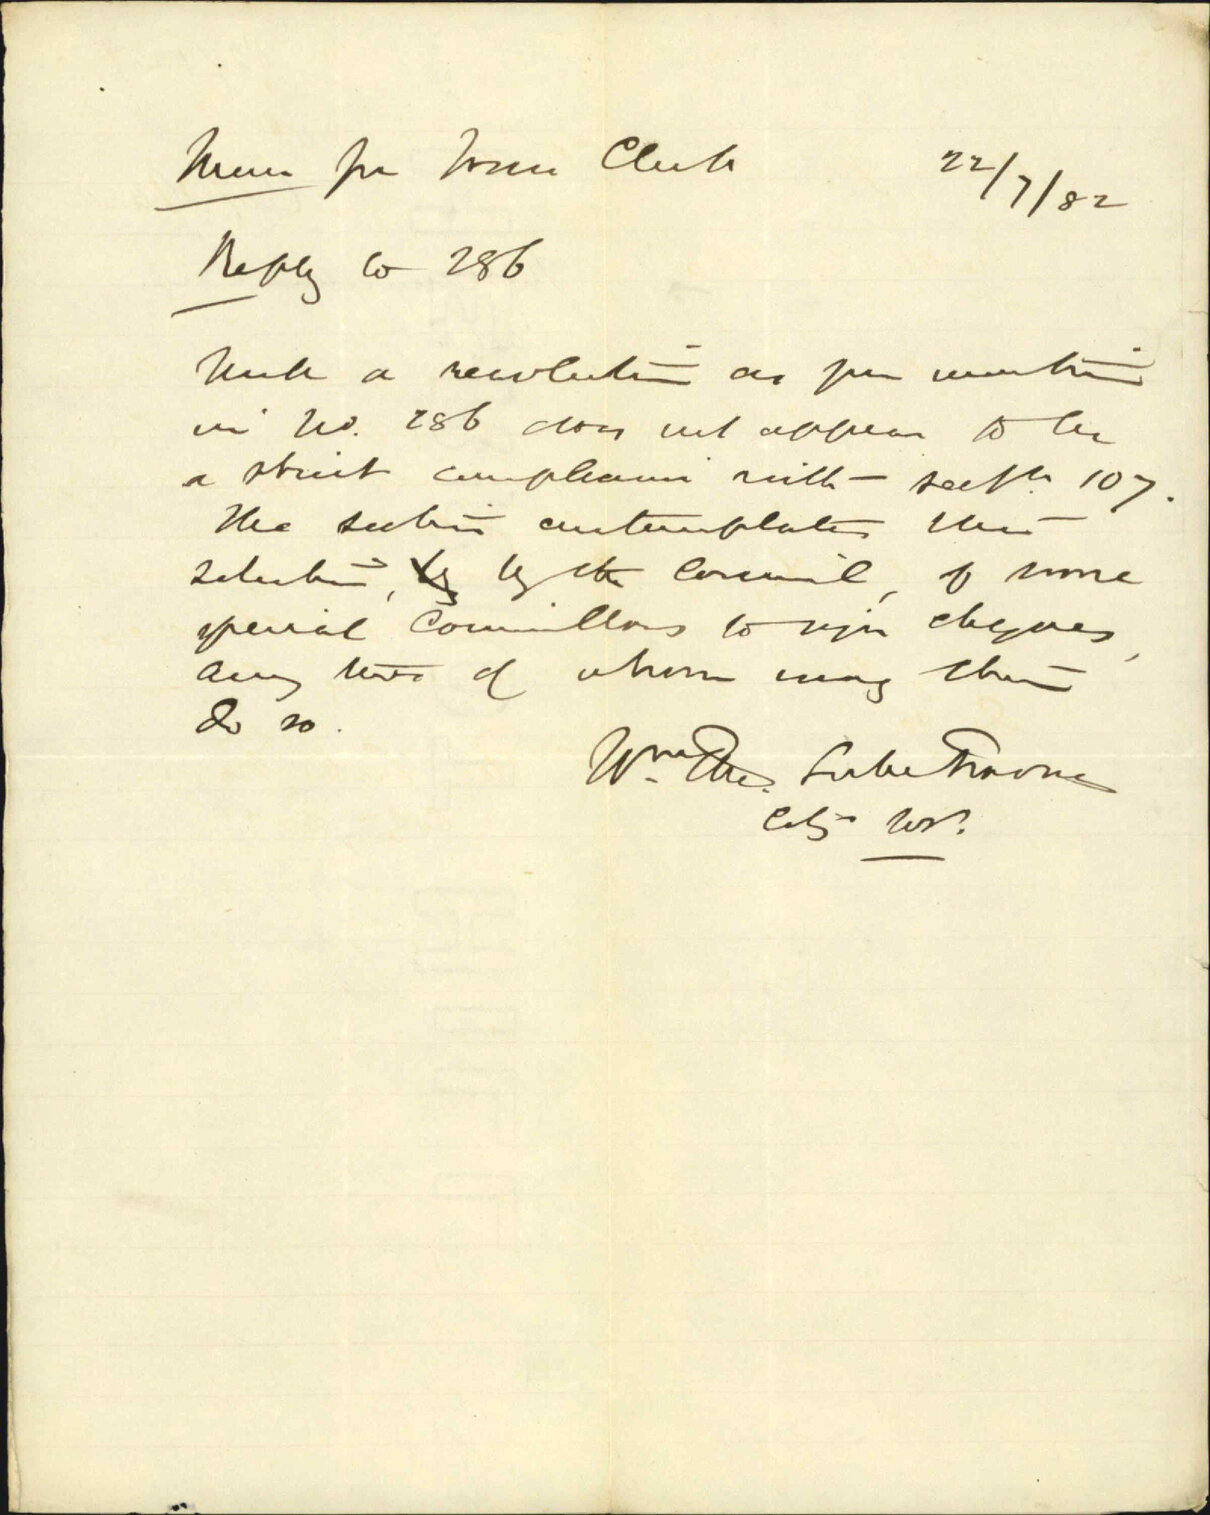 Memo for Town Clerk 22/7/82
Reply to 286
Such a resolution as per mention
in No. 286 does not appear to be
a strict compliance with sect. 107.
The section contemplates the
selection, by the Council, of some
special Councillors to sign cheques,
any two of whom may then
do so.
Wm. Thos. Locke Travers
City Sol.